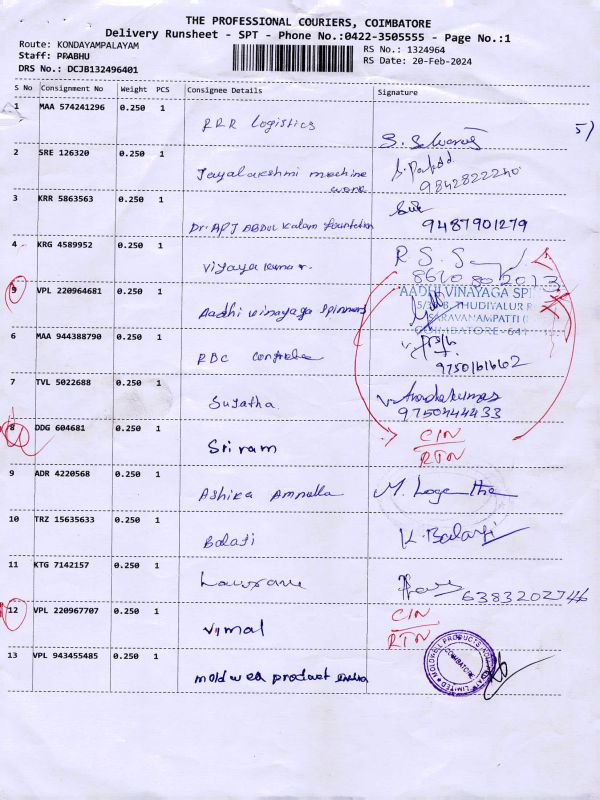 THE PROFESSIONAL COURIERS, COIMBATORE
Delivery Runsheet - SPT - Phone No.:0422-3505555 - Page No.:1
Route: KONDAYAMPALAYAM
Staff: PRABHU
DRS No.: DCJB132496401
RS No.: 1324964
RS Date: 20-Feb-2024
S No Consignment No Weight PCS Consignee Details Signature
1 MAA 574241296 0.250 1 RRR Logistics S. Selvaraj
5)
2 SRE 126320 0.250 1 Jayalakshmi machine
work 9842822240
3 KRR 5863563 0.250 1 Dr. APJ ABDUL Kalam foundation 9487901279
4 KRG 4589952 0.250 1 Vijayakumar. R.S.
8610802013
5 VPL 220964681 0.250 1 Aadhi vinayaga spinners
AADHI VINAYAGA
THUDIYALUR
SARAVANAMPATTI
COIMBATORE - 641
6 MAA 944388790 0.250 1 RBC
9750161662
7 TVL 5022688 0.250 1 Sujatha V. Anandakumar
9750444433
8 DDG 604681 0.250 1 Sriram CIN
RTN
9 ADR 4220568 0.250 1 Ashika M.
10 TRZ 15635633 0.250 1 Balaji K. Balaji
11 KTG 7142157 0.250 1
6383202746
12 VPL 220967707 0.250 1 Vimal CIN
RTN
13 VPL 943455485 0.250 1 moldwell product India
MOLDWELL PRODUCTS LIMITED
COIMBATORE